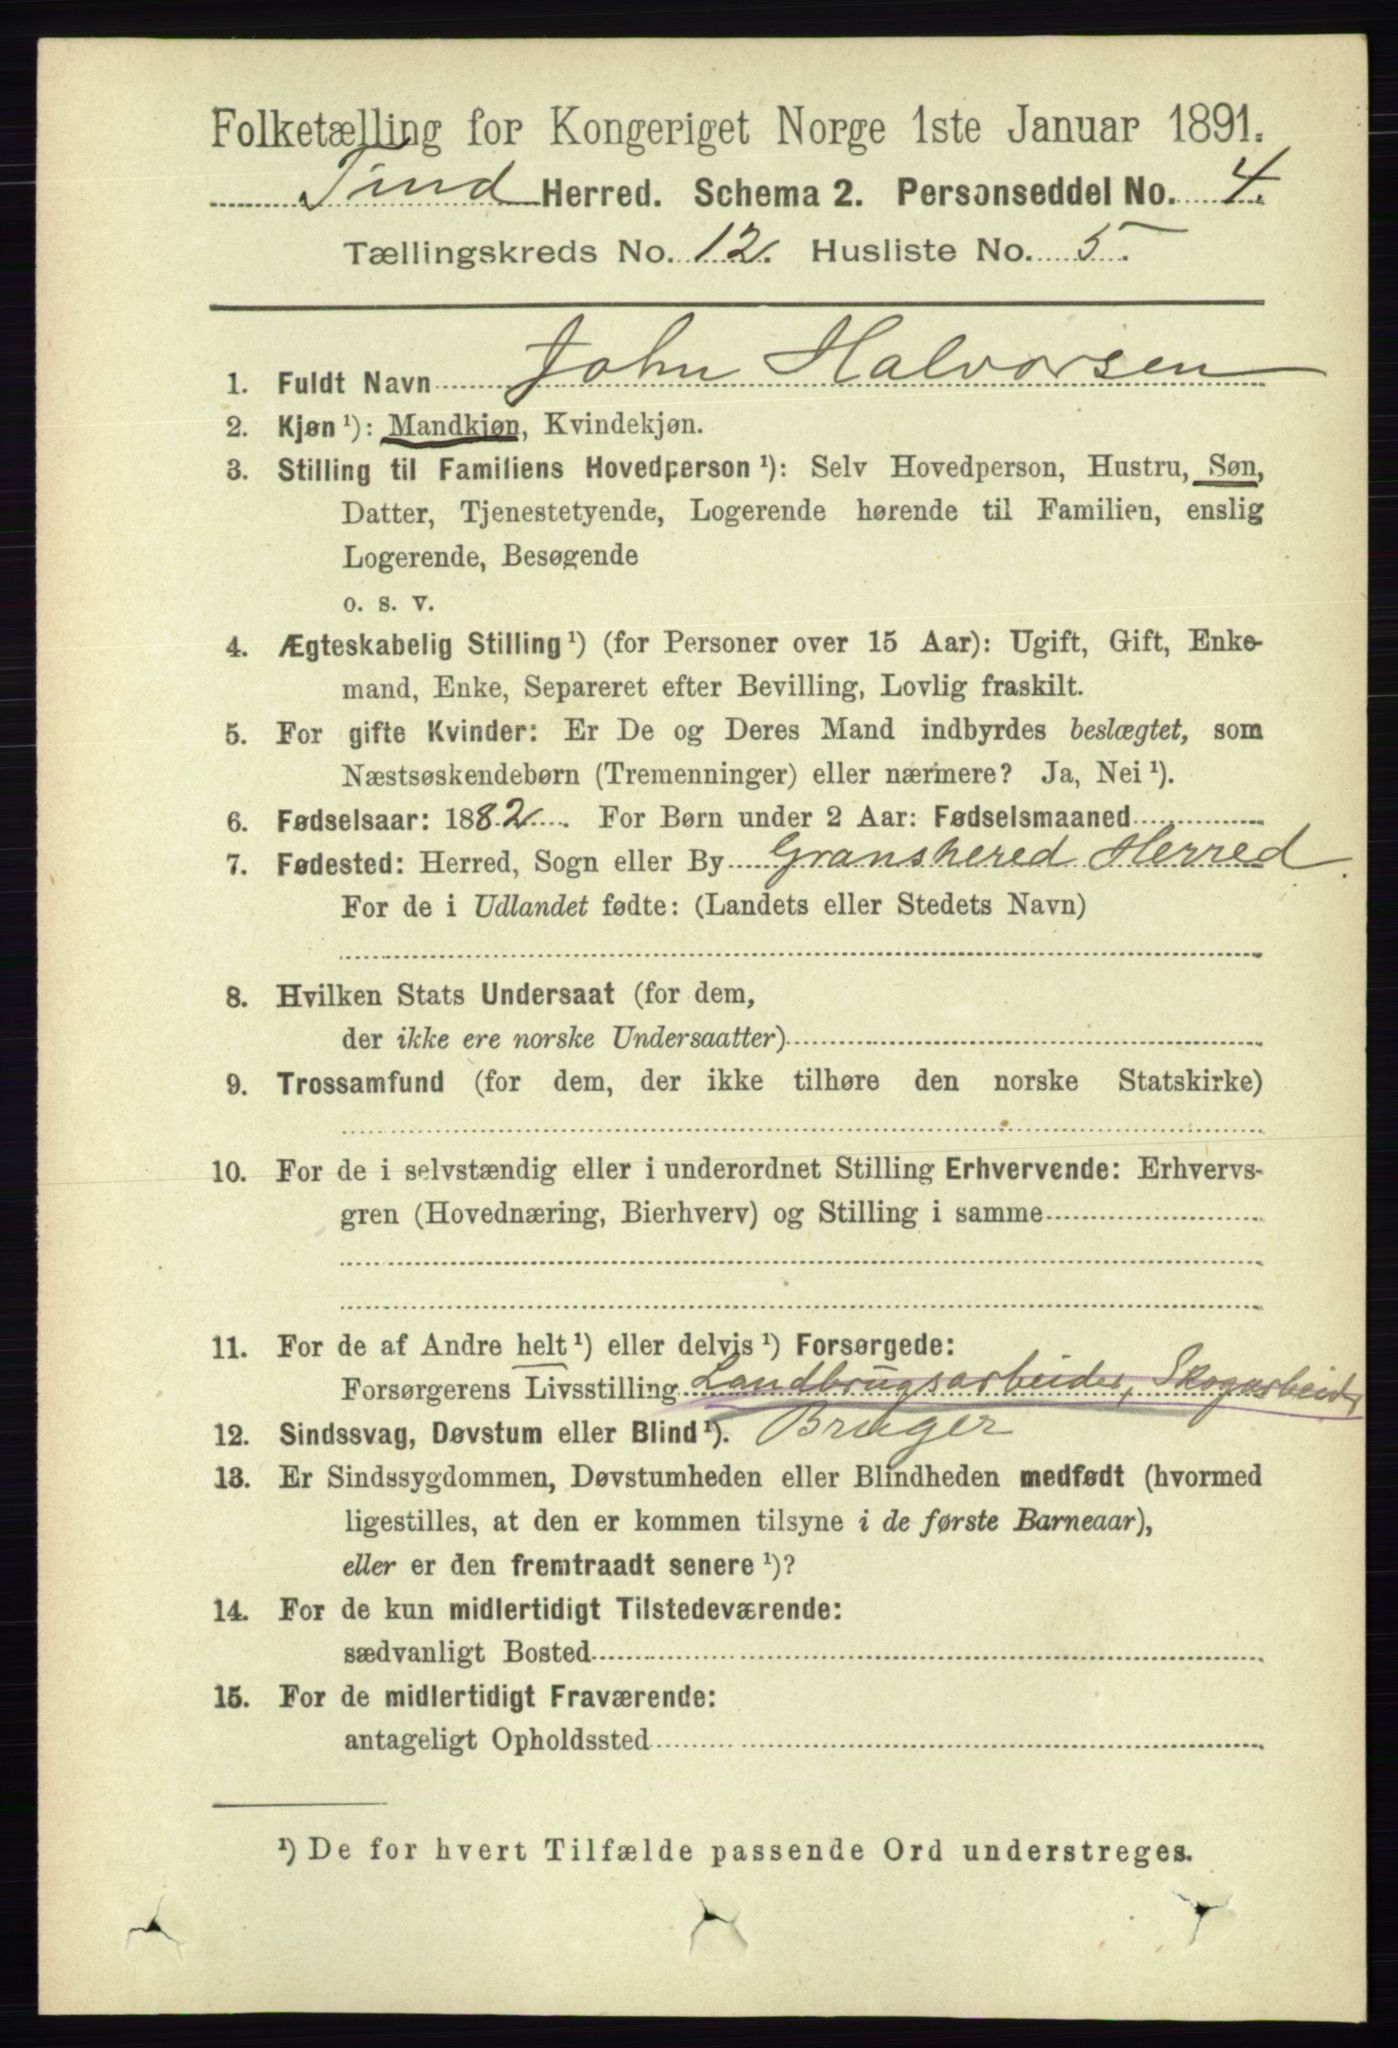 Folketælling for Kongeriget Norge 1ste Januar 1891.
Tind Herred. Schema 2. Personseddel No. 4.
Tællingskreds No. 12. Husliste No. 5.
1. Fuldt Navn John Halvorsen
2. Kjøn ¹): Mandkjøn, Kvindekjøn.
3. Stilling til Familiens Hovedperson ¹): Selv Hovedperson, Hustru, Søn,
Datter, Tjenestetyende, Logerende hørende til Familien, enslig
Logerende, Besøgende
o. s. v.
4. Ægteskabelig Stilling ¹) (for Personer over 15 Aar): Ugift, Gift, Enke-
mand, Enke, Separeret efter Bevilling, Lovlig fraskilt.
5. For gifte Kvinder: Er De og Deres Mand indbyrdes beslægtet, som
Næstsøskendebørn (Tremenninger) eller nærmere? Ja, Nei ¹).
6. Fødselsaar: 1882. For Børn under 2 Aar: Fødselsmaaned
7. Fødested: Herred, Sogn eller By Gransherred Herred.
For de i Udlandet fødte: (Landets eller Stedets Navn)
8. Hvilken Stats Undersaat (for dem,
der ikke ere norske Undersaatter)
9. Trossamfund (for dem, der ikke tilhøre den norske Statskirke)
10. For de i selvstændig eller i underordnet Stilling Erhvervende: Erhvervs-
gren (Hovednæring, Bierhverv) og Stilling i samme
11. For de af Andre helt ¹) eller delvis ¹) Forsørgede:
Forsørgerens Livsstilling Landbrugsarbeider, Skogarbeider,
12. Sindssvag, Døvstum eller Blind ¹). Bruger
13. Er Sindssygdommen, Døvstumheden eller Blindheden medfødt (hvormed
ligestilles, at den er kommen tilsyne i de første Barneaar),
eller er den fremtraadt senere ¹)?
14. For de kun midlertidigt Tilstedeværende:
sædvanligt Bosted
15. For de midlertidigt Fraværende:
antageligt Opholdssted
¹) De for hvert Tilfælde passende Ord understreges.